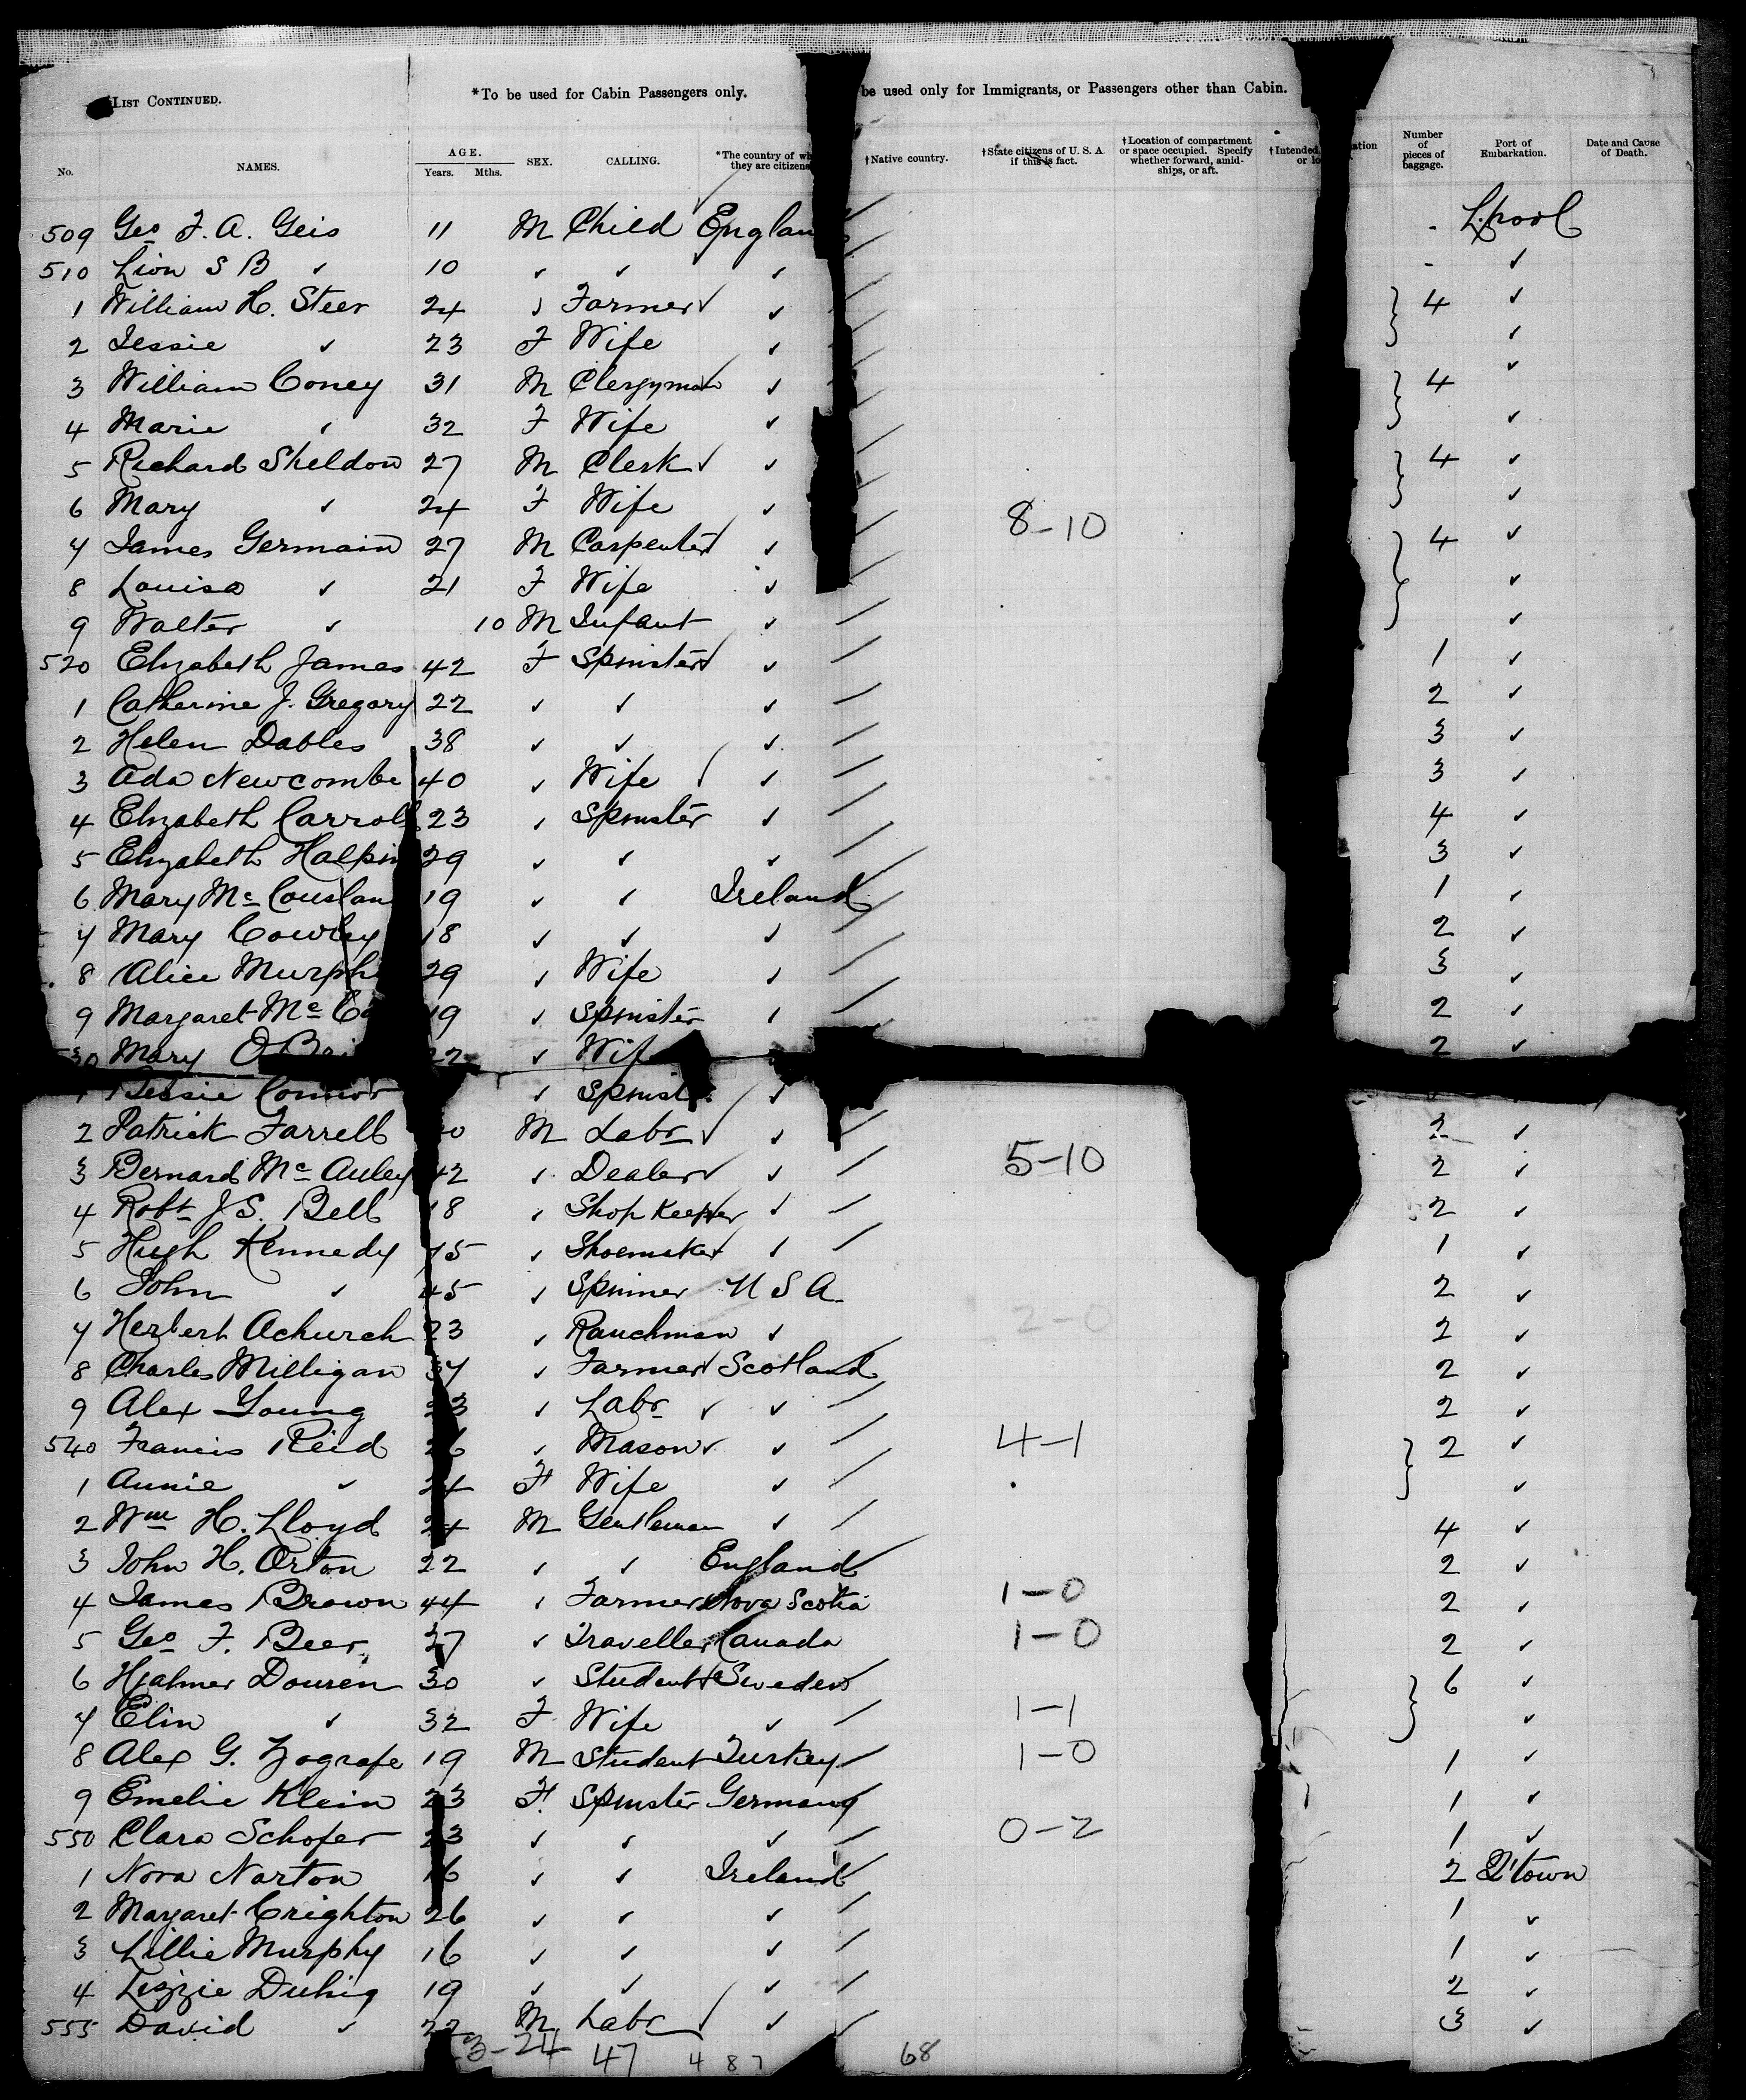 LIST CONTINUED.
*To be used for Cabin Passengers only.
be used only for Immigrants, or Passengers other than Cabin.
No. NAMES. AGE. Years. Mths. SEX. CALLING. *The country of wh they are citizens †Native country. †State citizens of U. S. A. if this is fact. †Location of compartment or space occupied. Specify whether forward, amid-ships, or aft. †Intended or lo ation Number of pieces of baggage. Port of Embarkation. Date and Cause of Death.
509 Geo F. A. Geis 11 M Child Englan - L.pool
510 Lion S B ✓ 10 ✓ ✓ ✓ - ✓
1 William H. Steer 24 ✓ Farmer ✓ 4 ✓
2 Jessie ✓ 23 F Wife ✓ ✓
3 William Coney 31 M Clergyman ✓ 4 ✓
4 Marie ✓ 32 F Wife ✓ ✓
5 Richard Sheldon 27 M Clerk ✓ 4 ✓
6 Mary ✓ 24 F Wife ✓ 8-10 ✓
7 James Germain 27 M Carpenter ✓ 4 ✓
8 Louisa ✓ 21 F Wife ✓ ✓
9 Walter ✓ 10 M Infant ✓ ✓
520 Elizabeth James 42 F Spinster ✓ 1 ✓
1 Catherine J. Gregory 22 ✓ ✓ ✓ 2 ✓
2 Helen Dables 38 ✓ ✓ ✓ 3 ✓
3 Ada Newcombe 40 ✓ Wife ✓ 3 ✓
4 Elizabeth Carroll 23 ✓ Spinster ✓ 4 ✓
5 Elizabeth Halpin 29 ✓ ✓ ✓ 3 ✓
6 Mary Mc Causlan 19 ✓ ✓ Ireland 1 ✓
7 Mary Cowley 18 ✓ ✓ ✓ 2 ✓
8 Alice Murph 29 ✓ Wife ✓ 3 ✓
9 Margaret Mc 19 ✓ Spinster ✓ 2 ✓
530 Mary O'Bri 22 ✓ Wif 2 ✓
1 Bessie Connor ✓ Spinst ✓
2 Patrick Farrell 0 M Labr ✓ 2 ✓
3 Bernard Mc Auley 42 ✓ Dealer ✓ 5-10 2 ✓
4 Robt J S. Bell 18 ✓ Shop Keeper ✓ 2 ✓
5 Hugh Kennedy 5 ✓ Shoemaker ✓ 1 ✓
6 John ✓ 45 ✓ Spinner U S A 2 ✓
7 Herbert Achurch 23 ✓ Ranchman ✓ 2-0 2 ✓
8 Charles Milligan 37 ✓ Farmer Scotland 2 ✓
9 Alex Young 23 ✓ Labr ✓ 2 ✓
540 Francis Reid 26 ✓ Mason ✓ 4-1 2 ✓
1 Annie ✓ 24 F Wife ✓ ✓
2 Wm H. Lloyd 24 M Gentleman ✓ 4 ✓
3 John H. Orton 22 ✓ ✓ England 2 ✓
4 James Brown 44 ✓ Farmer Nova Scotia 1-0 2 ✓
5 Geo F. Beer 27 ✓ Traveller Canada 1-0 2 ✓
6 Hjalmer Douren 30 ✓ Student Sweden 6 ✓
7 Elin ✓ 32 F Wife ✓ 1-1 ✓
8 Alex G. Zografe 19 M Student Turkey 1-0 1 ✓
9 Emelie Klein 23 F Spinster Germany 1 ✓
550 Clara Schofer 23 ✓ ✓ ✓ 0-2 1 ✓
1 Nora Narton 16 ✓ ✓ Ireland 2 Q'town
2 Margaret Crighton 26 ✓ ✓ ✓ 1 ✓
3 Lillie Murphy 16 ✓ ✓ ✓ 1 ✓
4 Lizzie Duhig 19 ✓ ✓ ✓ 2 ✓
555 David ✓ 22 M Labr ✓ 3 ✓
3-24 47 4 8 7 68